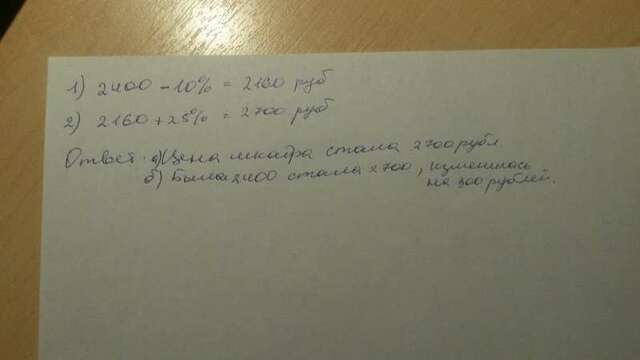 1) 2400 - 10% = 2160 руб
2) 2160 + 25% = 2700 руб
Ответ: а) Цена шкафа стала 2700 рубл
б) Была 2400 стала 2700, изменилась
на 300 рублей.